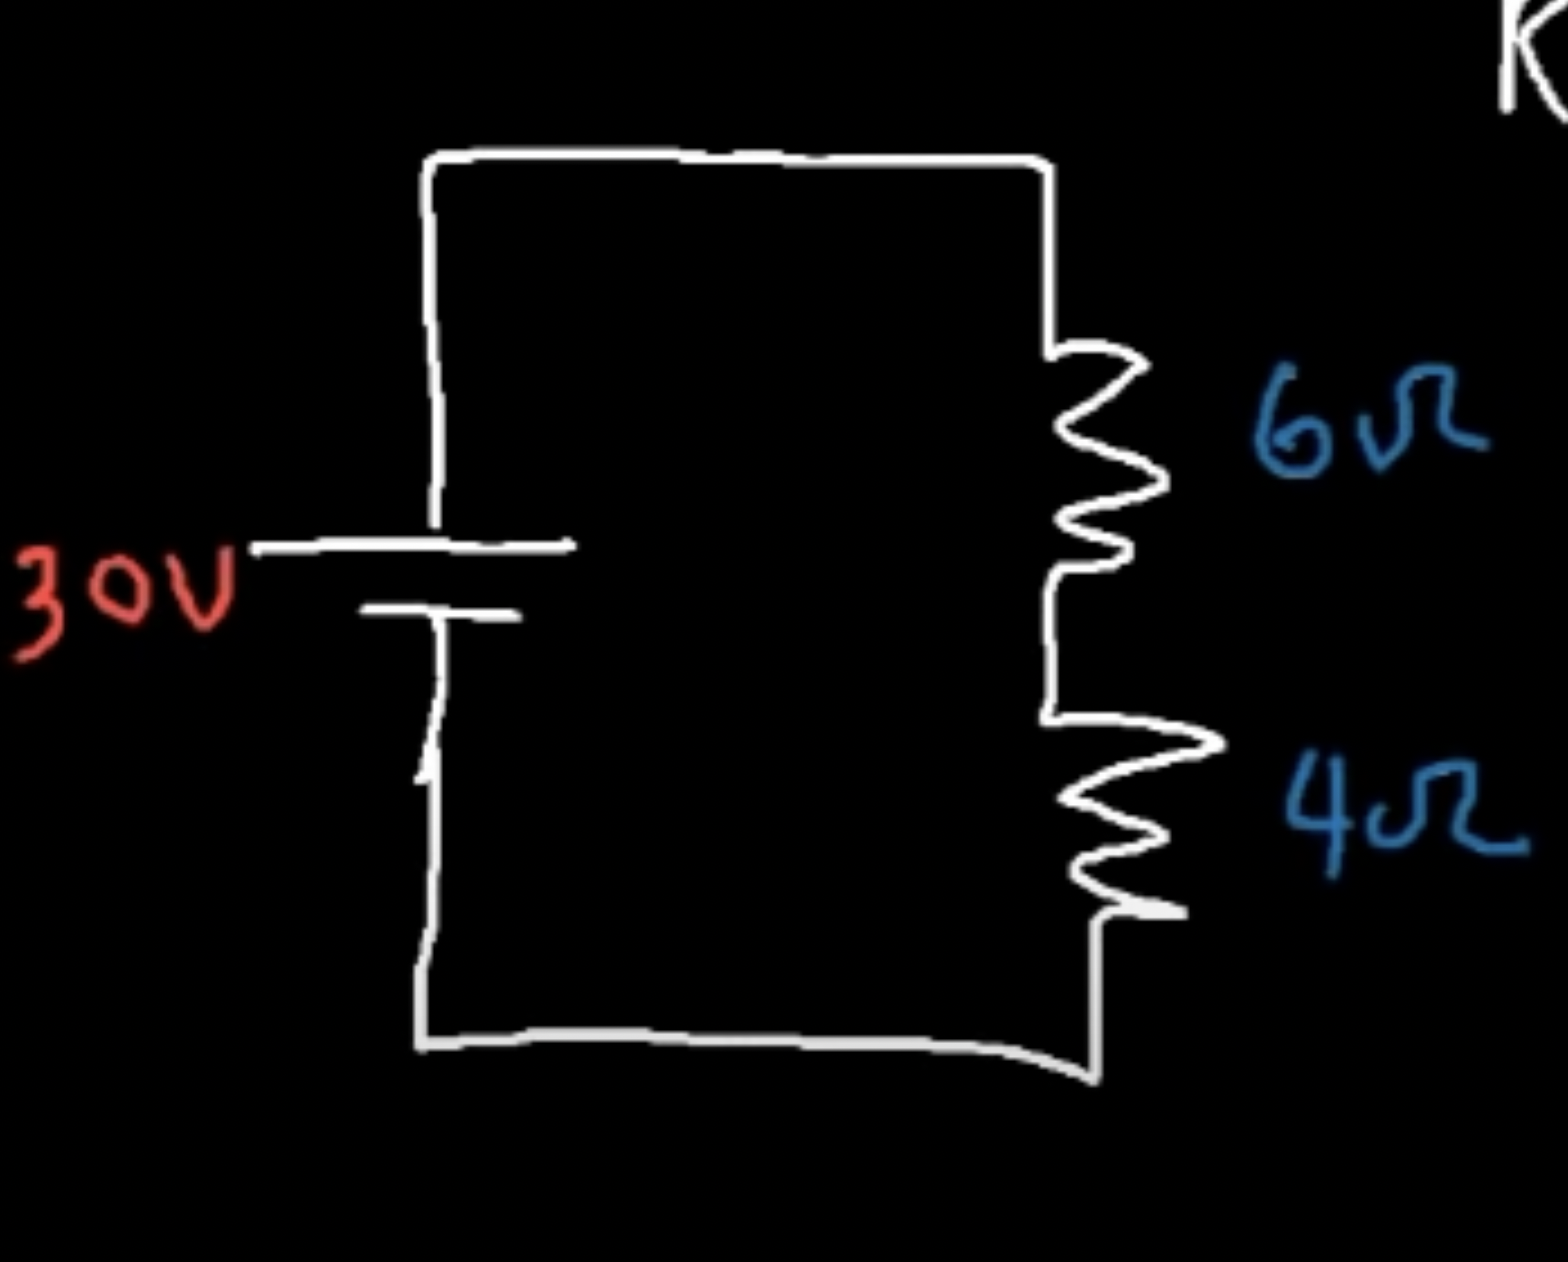 R
6Ω
30V
4Ω